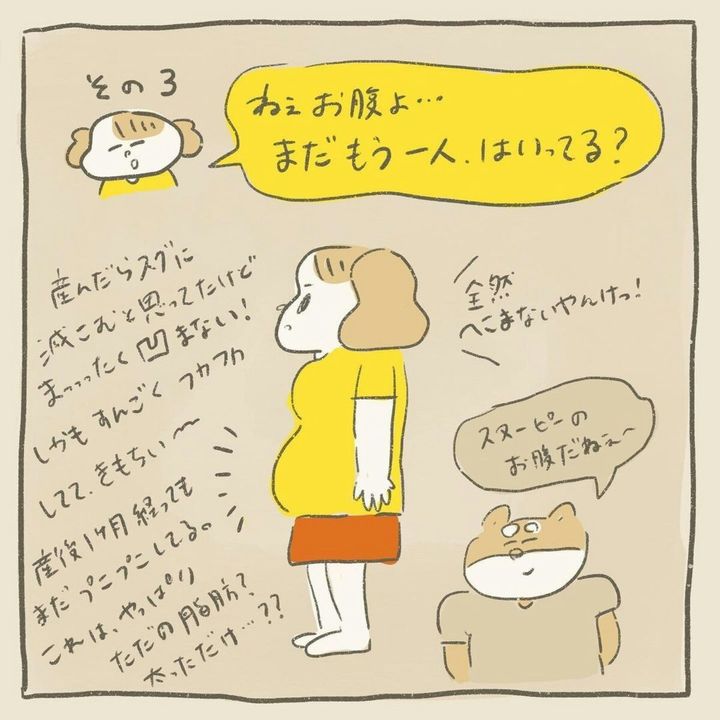 その3
ねぇお腹よ…
まだもう一人、はいってる?
産んだらスグに
減こむと思ってたけど
まっっったく凹まない!
しかもすんごくフカフカ
してて、きもちぃ〜
産後1ヶ月経っても
まだプニプニしてる。
これは、やっぱり
ただの脂肪?
太っただけ…??
全然
へこまないやんけっ!
スヌーピーの
お腹だねぇ〜